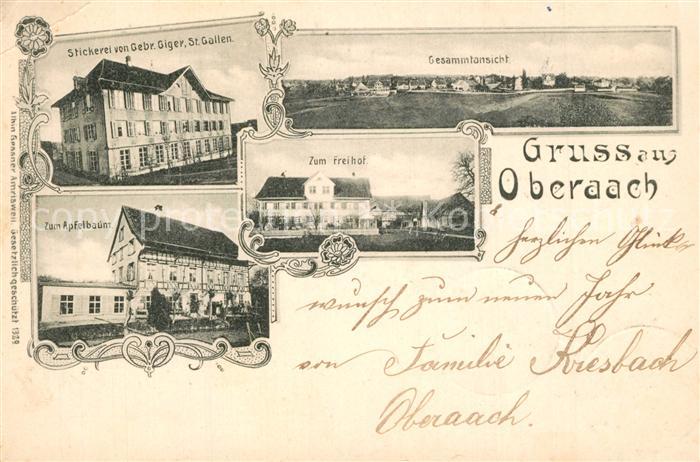 Stickerei von Gebr. Giger, St. Gallen.
Gesammtansicht
Zum Freihof.
Zum Apfelbaum
Gruss aus
Oberaach
herzlichen Glück-
wunsch zum neuen Jahr
von Familie Kresbach
Oberaach.
Albin Gessner Amrisweil. Gesetzlich geschützt 1329